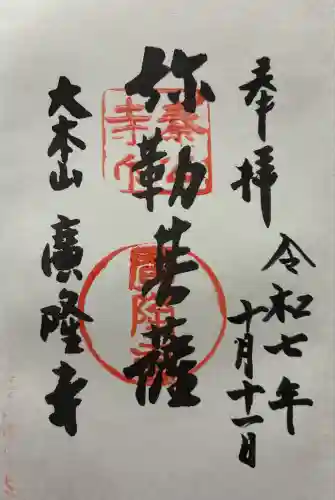 奉拝
令和七年
十月十一日
弥勒菩薩
大本山
廣隆寺